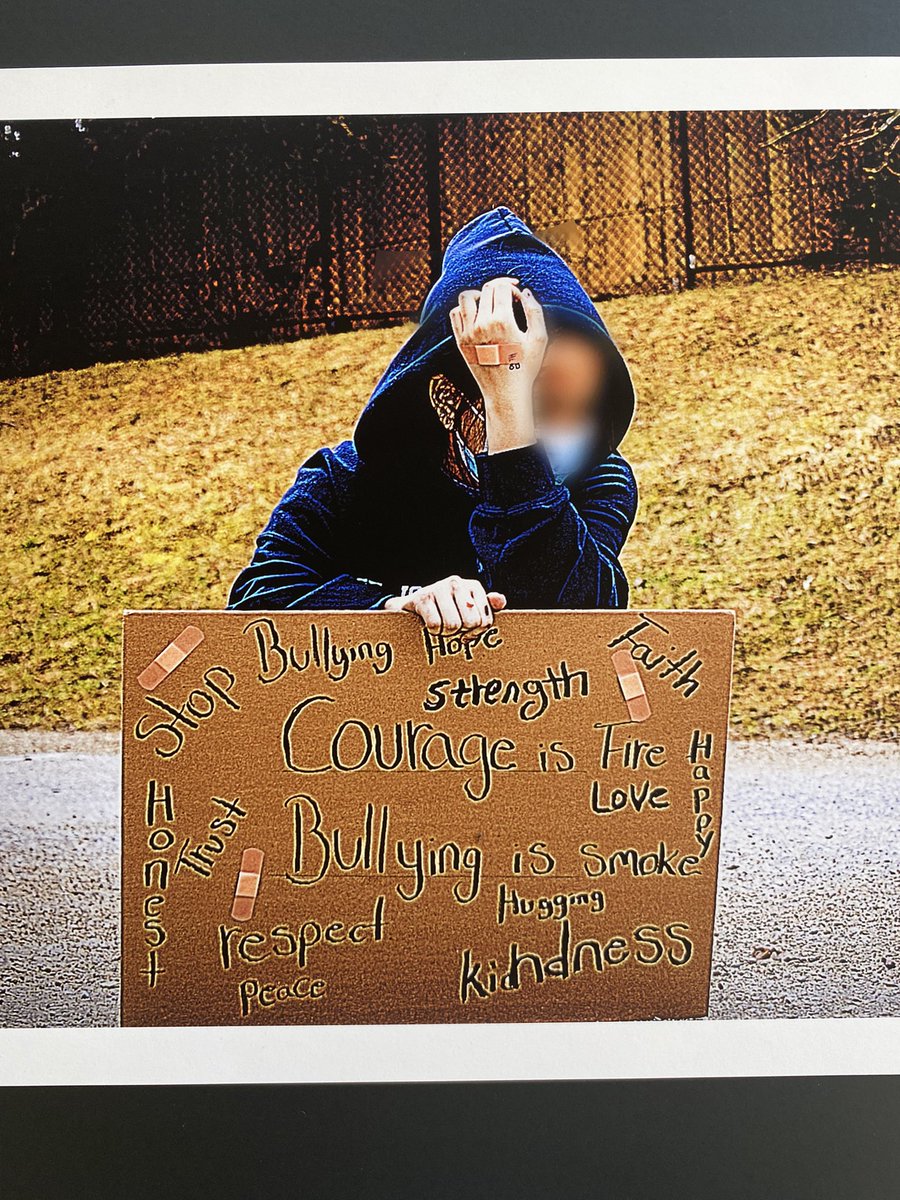 Stop Bullying
Hope
Faith
strength
Courage is Fire
Love
Happy
Honest
Trust
Bullying is smoke
Hugging
respect
kidndness
Peace